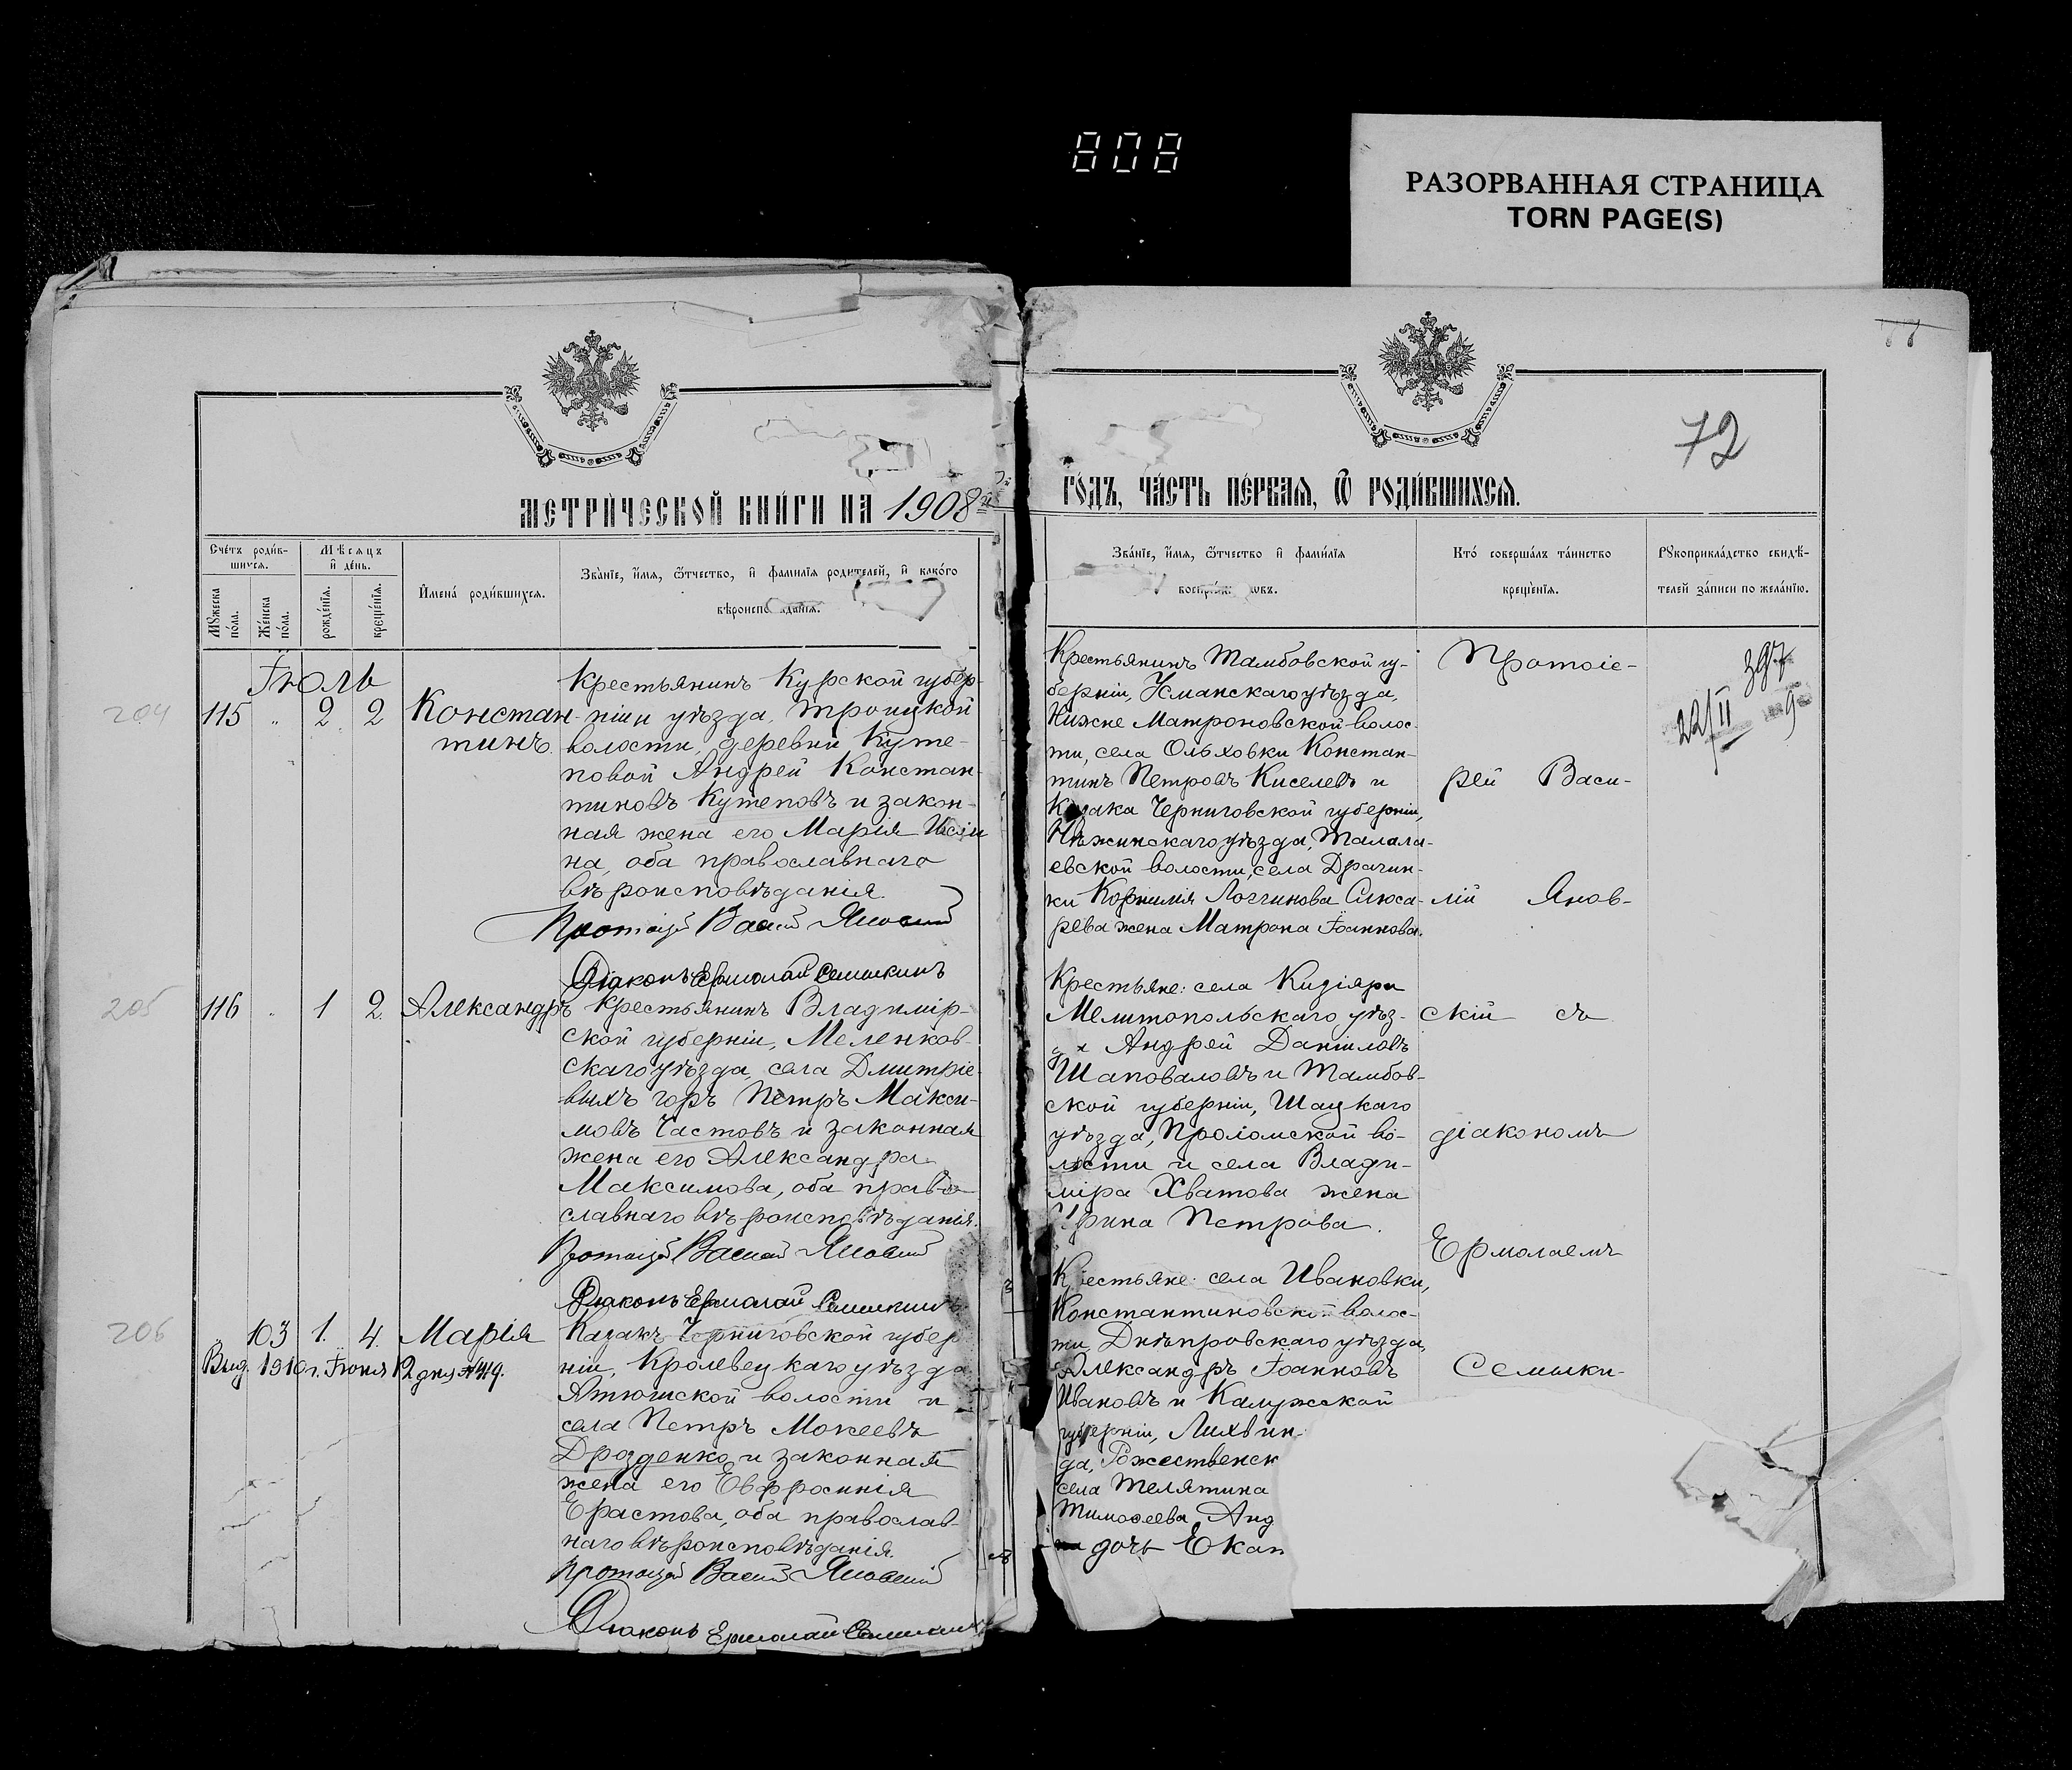 808
РАЗОРВАННАЯ СТРАНИЦА
TORN PAGE(S)
72
МЕТРИ́ЧЕСКОЙ КНИ́ГИ НА 1908й
ГО́ДЪ, ЧА́СТЬ ПЕ́РВАѦ, Ѿ РОДИ́ВШИХСѦ.
Сче́тъ роди́в-
шихсѧ.
Мѣсѧцъ
и҆ де́нь.
Мꙋжеска
по́ла.
Же́нска
по́ла.
рожде́нїѧ.
креще́нїѧ.
И҆мена̀ роди́вшихсѧ.
Зва́нїе, и҆́мѧ, ѻ҆́тчество, и҆ фами́лїѧ роди́телей, и҆ како́го
вѣроиспо данїѧ.
Зва́нїе, и҆́мѧ, ѻ҆́тчество и҆ фами́лїѧ
воспрїе овъ.
Кто̀ соверша́лъ та́инство
креще́нїѧ.
Рꙋкоприкла́дство свидѣ́-
телей за́писи по жела́нїю.
Іюль
204 115 " 2 2 Констан-
тинъ
Крестьянинъ Курской губер-
ніи и уѣзда, Троицкой
волости, деревни Куте-
повой Андрей Констан-
тиновъ Кутеповъ и закон-
ная жена его Марія
на, оба православнаго
вѣроисповѣданія.
Протоіерей Василій Яновскій
Діаконъ Ермолай Семыкинъ
Крестьянинъ Тамбовской гу-
берніи, Усманскаго уѣзда,
Нижне Матроновской волос-
ти, села Ольховки Констан-
тинъ Петровъ Киселевъ и
Казака Черниговской губерніи,
Нѣжинскаго уѣзда, Талала-
евской волости, села Драчин-
ки Корнилія Логгинова Слюса-
рева жена Матрона Іоаннова.
Протоіе-
рей Васи-
лій Янов-
скій съ
діакономъ
Ермолаемъ
Семыки-
397
22/II 9
205 116 " 1 2 Александръ
Крестьянинъ Владимір-
ской губерніи, Меленков-
скаго уѣзда, села Дмитріе-
выхъ горъ Петръ Макси-
мовъ Частовъ и законная
жена его Александра
Максимова, оба право-
славнаго вѣроисповѣданія.
Протоіерей Василій Яновскій
Діаконъ Ермолай Семыкинъ
Крестьяне: села Кизіяри
Мелитопольскаго уѣз-
Андрей Даниловъ
Шаповаловъ и Тамбов-
ской губерніи, Шацкаго
уѣзда, Проломской во-
лости и села Влади-
міра Хватова жена
Ирина Петрова.
206 " 103 1. 4. Марія
Выд. 1910 г. Іюня 12 дня №419.
Казакъ Черниговской губер
ніи, Кролевецкаго уѣзда
Атюшской волости и
села Петръ Мокеевъ
Дрозденко и законная
жена его Евфросинія
Ерастова, оба православ-
наго вѣроисповѣданія.
Протоіерей Василій Яновскій
Діаконъ Ермолай Семыкинъ
Крестьяне: села Ивановки,
Константиновской волос-
ти, Днѣпровскаго уѣзда,
Александръ Іоанновъ
Ивановъ и Калужской
губерніи, Лихвин
да, Рожественск
села Телятина
Тимоѳеева Анд
дочь Екат